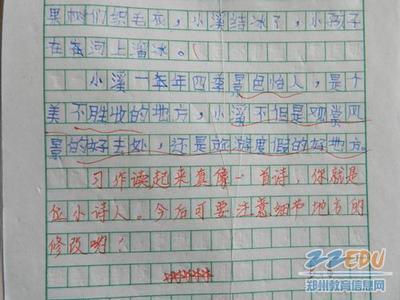 果树们织毛衣，小溪结冰了，小孩子
在在河上溜冰。
小溪一年年四季景色怡人，是个
美不胜收的地方，小溪不但是观赏风
景的好去处，还是旅游度假的好地方。
习作读起来真像一首诗，你就是
位小诗人。今后可要注意细节地方的
修改哟！
ZZEDU
郑州教育信息网